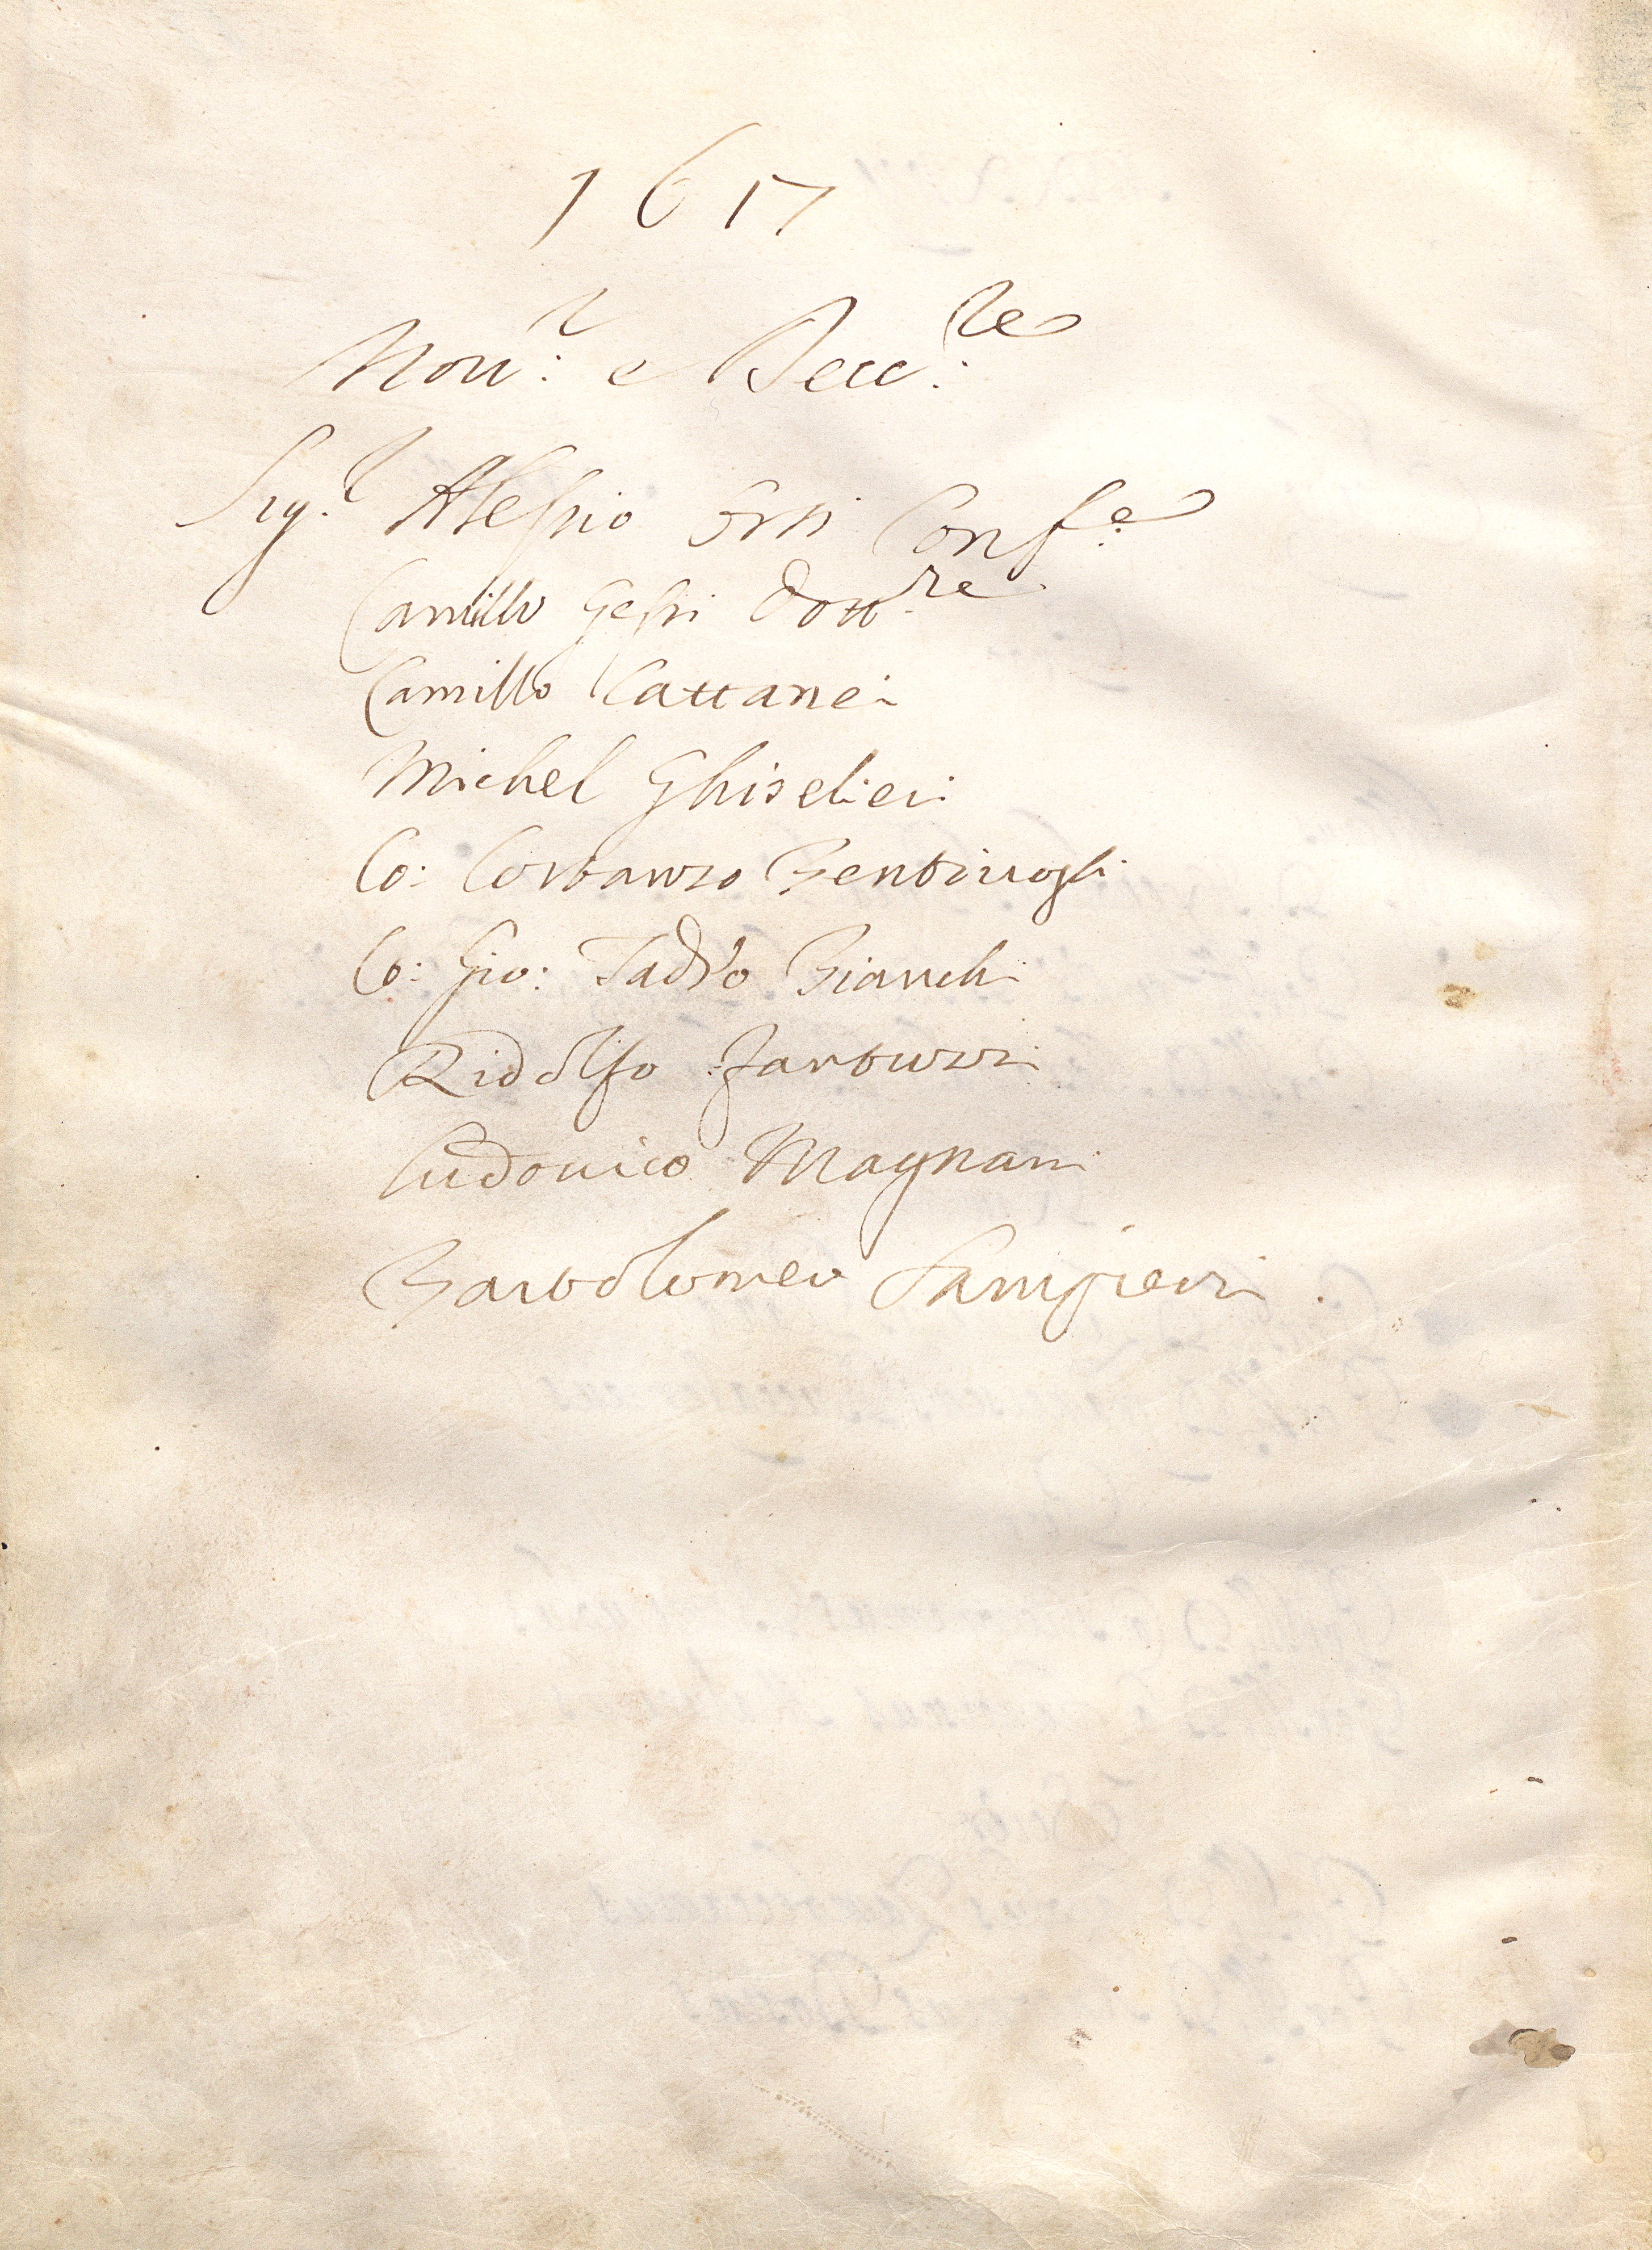 1617
Nou.r e Xcc.re
Sig.r Alessio Orsi Conf.e
Camillo Gessi Dott.re
Camillo Cattanei
Michel Ghiselieri
Co: Costanzo Bentiuogli
Co: Gio: Tadeo Bianchi
Ridolfo Fantuzzi
Ludouico Magnani
Bartolomeo Sampieri